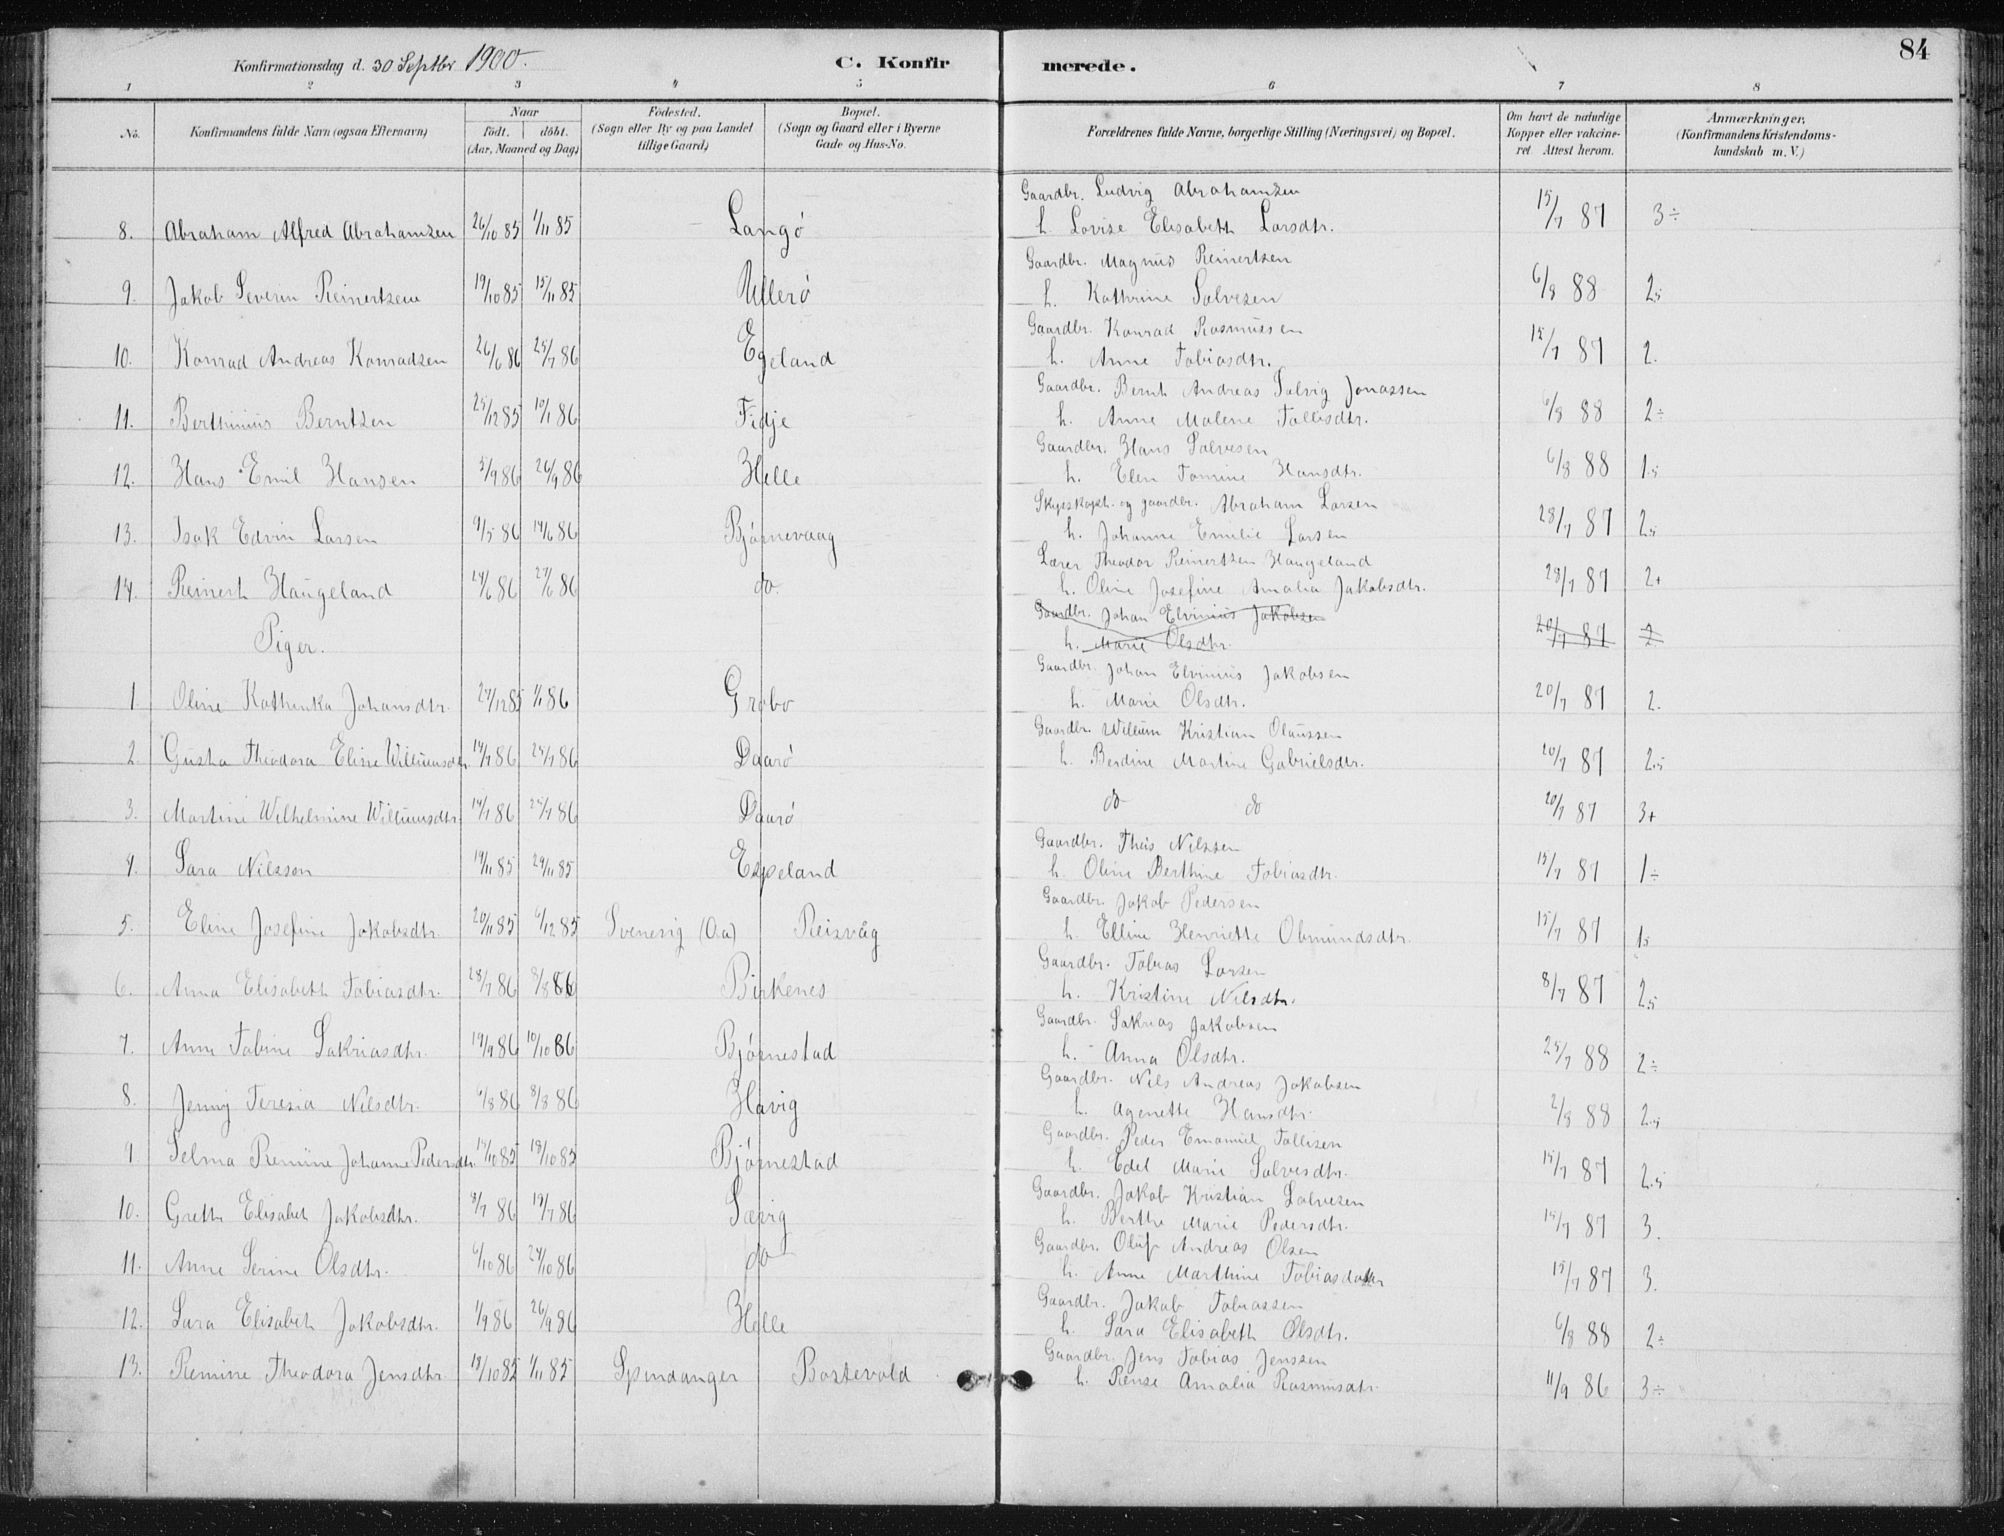 84
Konfirmationsdag d. 30 Septbr 1900.
C. Konfirmerede.
1 2 3 4 5 6 7 8
No. Konfirmandens fulde Navn (ogsaa Efternavn) Naar født. døbt. (Aar, Maaned og Dag) Fødested. (Sogn eller By og paa Landet tillige Gaard) Bopæl. (Sogn og Gaard eller i Byerne Gade og Hus-No. Forældrenes fulde Navne, borgerlige Stilling (Næringsvei) og Bopæl. Om havt de naturlige Kopper eller vakcineret. Attest herom. Anmærkninger, (Konfirmandens Kristendomskundskab m. V.)
Gaardbr. Ludvig Abrahamsen
8. Abraham Alfred Abrahamsen 26/10 85 1/11 85 Langø h. Lovise Elisabeth Larsdtr. 15/7 87 3÷
Gaardbr. Magnus Reinertsen
9. Jakob Severin Reinertsen 19/10 85 15/11 85 Ullerø h. Kathrine Salvesen 6/8 88 2,5
Gaardbr. Konrad Rasmussen
10. Konrad Andreas Konradsen 26/6 86 25/7 86 Egeland h. Anne Tobiasdtr. 15/7 87 2.
Gaardbr. Bernt Andreas Salvig Jonassen
11. Berthinius Berntsen 25/12 85 10/1 86 Fidje h. Anne Malene Tallisdtr. 6/8 88 2÷
Gaardbr. Hans Salvesen
12. Hans Emil Hansen 5/9 86 26/9 86 Helle h. Elen Tomine Hansdtr. 6/8 88 1,5
Skipskapt. og gaardbr. Abraham Larsen
13. Isak Edvin Larsen 9/5 86 14/6 86 Bjørnevaag h. Johanne Emilie Larsen 28/7 87 2,5
Lærer Theodor Reinertsen Haugeland
14. Reinert Haugeland 24/6 86 27/6 86 do. h. Oline Josefine Amalia Jakobsdtr. 28/7 87 2+
Gaardbr. Johan Elvinius Jakobsen
Piger. h. Marie Olsdtr. 20/7 87 2
Gaardbr. Johan Elvinius Jakobsen
1. Oline Kathinka Johansdtr. 27/12 85 1/1 86 Grobo h. Marie Olsdtr. 20/7 87 2.
Gaardbr. Willum Kristian Olaussen
2. Gusta Theodora Eline Willumsdtr. 14/7 86 25/7 86 Daarø h. Berdine Martine Gabrielsdtr. 20/7 87 2,5
3. Martine Wilhelmine Willumsdtr. 14/7 86 25/7 86 Daarø do do 20/7 87 3+
Gaardbr. Thiis Nilssen
4. Sara Nilsson 19/11 85 29/11 85 Espeland h. Oline Berthine Tobiasdtr. 15/7 87 1÷
Gaardbr. Jakob Pedersen
5. Eline Josefine Jakobsdtr. 20/11 85 6/12 85 Svenevig (Oa) Reisvåg h. Elline Henriette Obmundsdtr. 15/7 87 1,5
Gaardbr. Tobias Larsen
6. Anna Elisabeth Tobiasdtr. 28/7 86 8/8 86 Birkenes h. Kristine Nilsdtr. 8/7 87 2,5
Gaardbr. Sakrias Jakobsen
7. Anne Tobine Sakriasdtr. 19/9 86 10/10 86 Bjørnestad h. Anna Olsdtr. 25/7 88 2÷
Gaardbr. Nils Andreas Jakobsen
8. Jenny Teresia Nilsdtr. 6/8 86 8/8 86 Havig h. Agenette Hansdtr. 2/8 88 2,5
Gaardbr. Peder Emanuel Tallisen
9. Selma Remine Johanne Pedersdtr. 14/10 85 18/10 85 Bjørnestad h. Edel Marie Salvesdtr. 15/7 87 2,5
Gaardbr. Jakob Kristian Salvesen
10. Grethe Elisabet Jakobsdtr. 8/7 86 19/7 86 Sævig h. Berthe Marie Pedersdtr. 15/7 87 3.
Gaardbr. Oluf Andreas Olsen
11. Anne Serine Olsdtr. 6/10 86 24/10 86 do h. Anne Marthine Tobiasdatter 15/7 87 3.
Gaardbr. Jakob Tobiassen
12. Sara Elisabeth Jakobsdtr. 1/9 86 26/9 86 Helle h. Sara Elisabeth Olsdtr. 6/8 88 2÷
Gaardbr. Jens Tobias Jenssen
13. Remine Theodora Jensdtr. 18/10 85 1/11 85 Spindanger Bostevold h. Rense Amalia Rasmusdtr. 11/9 86 3÷